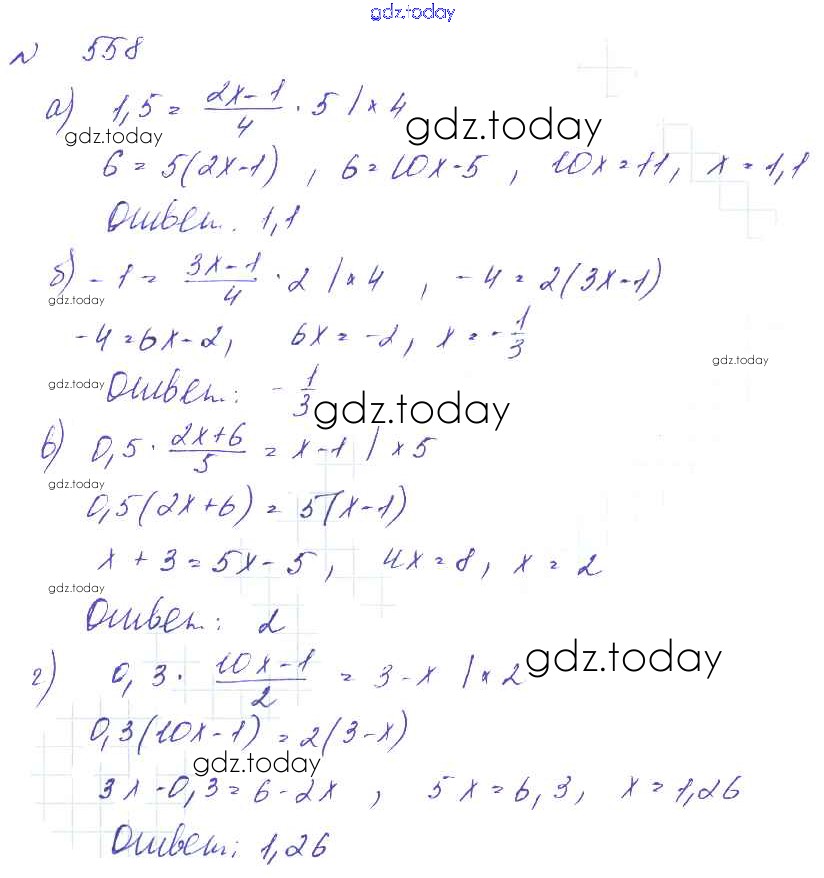 gdz.today
№ 558
а) 1,5 = (2x-1)/4 · 5 | × 4
gdz.today
gdz.today
6 = 5(2x-1) , 6 = 10x-5 , 10x = 11, x = 1,1
Ответ. 1,1
б) -1 = (3x-1)/4 · 2 | × 4 , -4 = 2(3x-1)
gdz.today
-4 = 6x-2, 6x = -2, x = -1/3
gdz.today
gdz.today
Ответ: -1/3
gdz.today
в) 0,5 · (2x+6)/5 = x-1 | × 5
gdz.today
0,5(2x+6) = 5(x-1)
x + 3 = 5x - 5, 4x = 8, x = 2
gdz.today
Ответ: 2
г) 0,3 · (10x-1)/2 = 3-x | × 2
gdz.today
0,3(10x-1) = 2(3-x)
gdz.today
3x - 0,3 = 6 - 2x , 5x = 6,3, x = 1,26
Ответ: 1,26